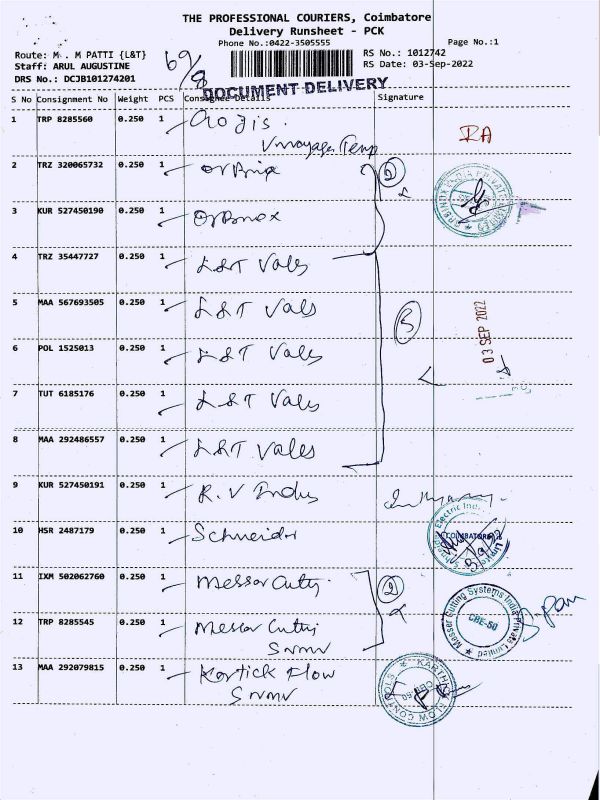 THE PROFESSIONAL COURIERS, Coimbatore
Delivery Runsheet - PCK
Phone No.:0422-3505555
Page No.:1
Route: M . M PATTI {L&T}
Staff: ARUL AUGUSTINE
DRS No.: DCJB101274201
69/8
RS No.: 1012742
RS Date: 03-Sep-2022
DOCUMENT DELIVERY
S No Consignment No Weight PCS Consignee Details Signature
1 TRP 8285560 0.250 1
RA
2 TRZ 320065732 0.250 1
2
3 KUR 527450190 0.250 1
4 TRZ 35447727 0.250 1 L&T Vales
5 MAA 567693505 0.250 1 L&T Vals
5
03 SEP 2022
6 POL 1525013 0.250 1 L&T Vales
7 TUT 6185176 0.250 1 L&T Vales
8 MAA 292486557 0.250 1 L&T Vales
9 KUR 527450191 0.250 1 R.V Indus
10 HSR 2487179 0.250 1 Schneider
COIMBATORE
11 IXM 502062760 0.250 1 Messer Cutty
2
Messer Cutting Systems India Private Limited
CBE-50
12 TRP 8285545 0.250 1 Messer Cutty
13 MAA 292079815 0.250 1 Kartick Flow
KARTHICK FLOW CONTROLS